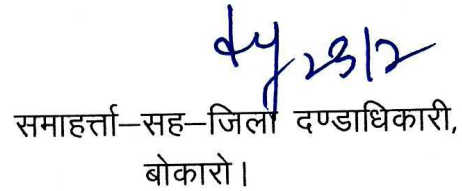 23/2
समाहर्त्ता–सह–जिला दण्डाधिकारी,
बोकारो।